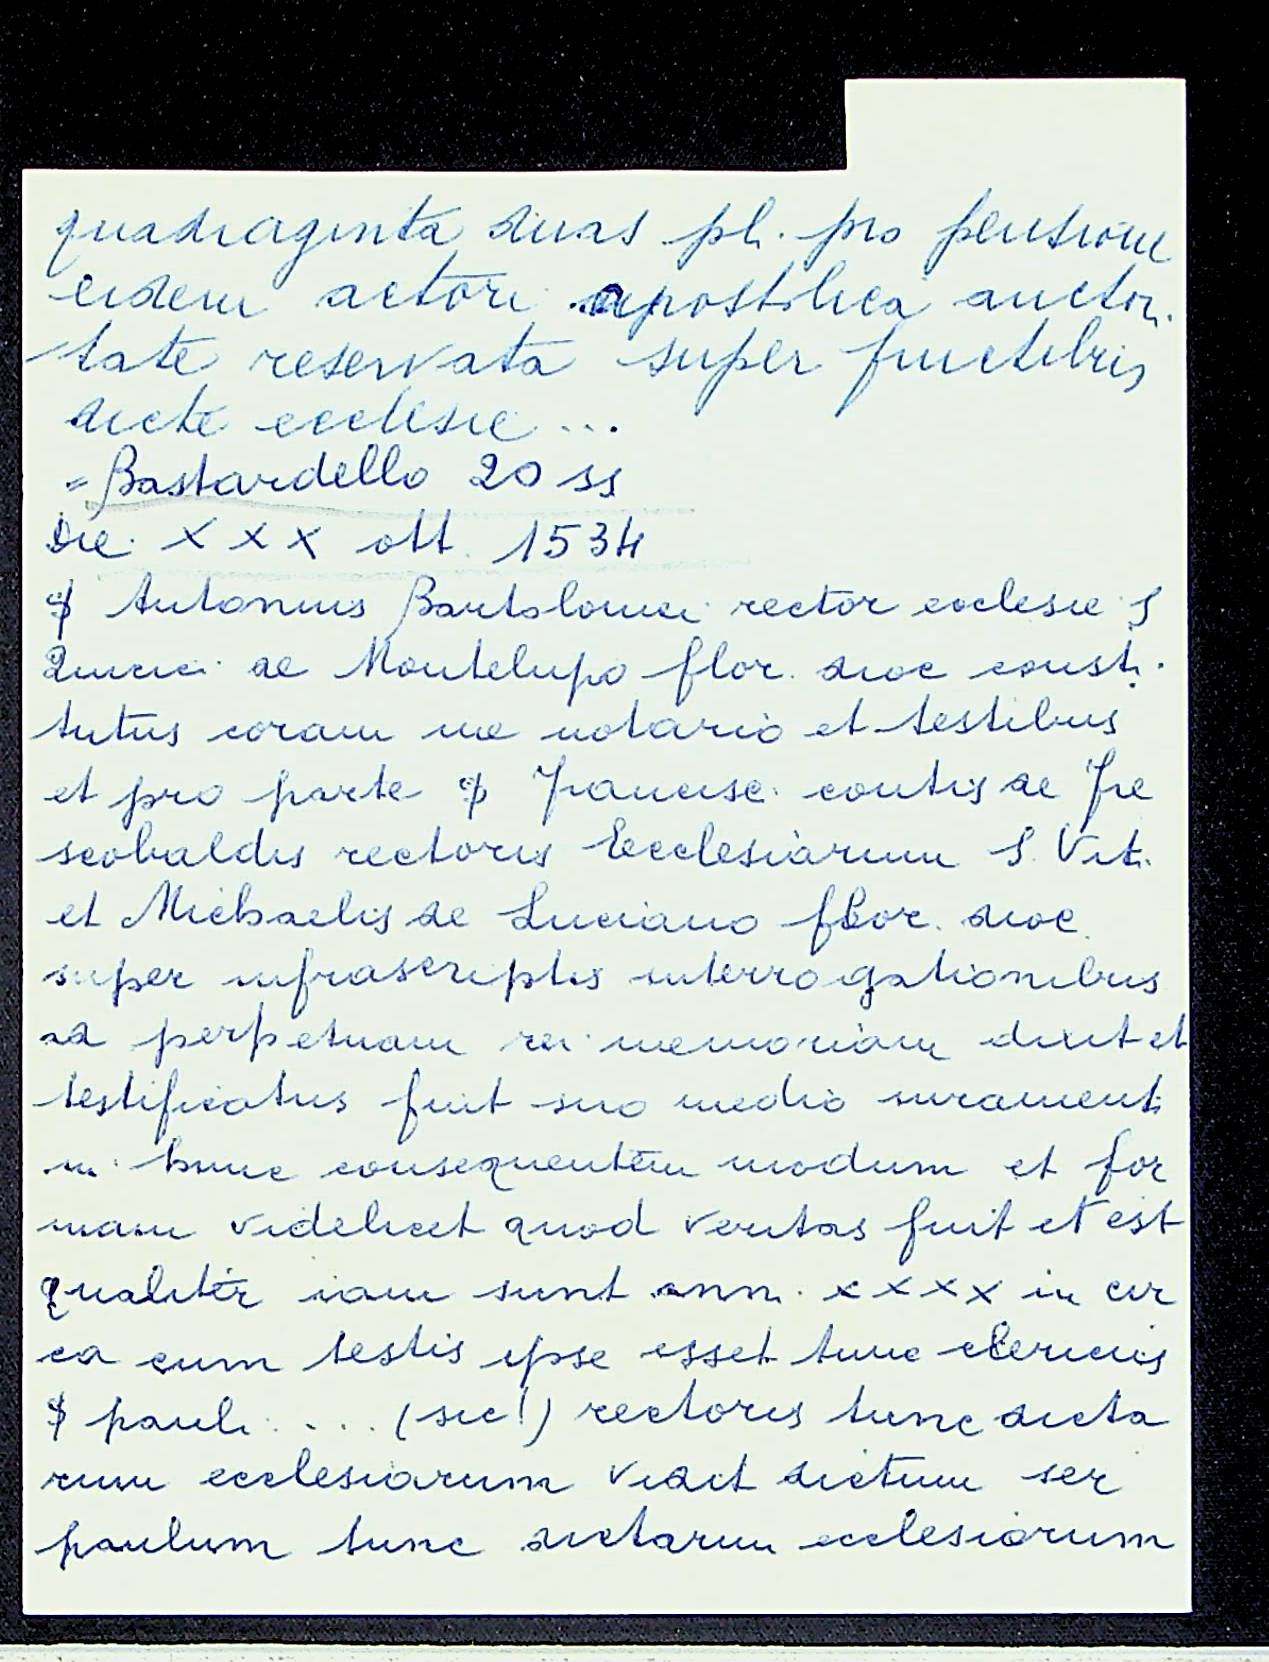 quadraginta duas pl. pro pensione
eidem actori apostolica auctori
tate reservata super fructibus
dicte ecclesie ...
= Bastardello 20 ss
Die XXX ott. 1534
Antonius Bartolomei rector ecclesie S
Quirici de Montelupo flor. dioc consti
tutus coram me notario et testibus
et pro parte Francisc. contis de Fre
scobaldis rectoris Ecclesiarum S. Viti
et Michaelis de Luciano flor. dioc.
super infrascriptis interrogationibus
ad perpetuam rei memoriam dixit et
testificatus fuit suo medio iuramenti
in hunc consequentem modum et for
mam videlicet quod veritas fuit et est
qualiter iam sunt ann. XXXX in cir
ca cum testis ipse esset tunc clericus
pauli .... (sic!) rectoris tunc dicta
rum ecclesiarum vidit dictum ser
paulum tunc dictarum ecclesiarum